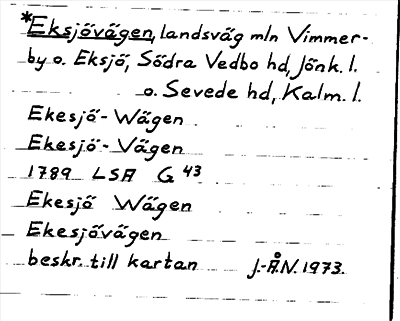 *Eksjövägen, landsväg mln Vimmer-
by o. Eksjö, Södra Vedbo hd, Jönk. l.
o. Sevede hd, Kalm. l.
Ekesjö-Wägen
Ekesjö-Vägen
1789 LSA G 43
Ekesjö Wägen
Ekesjövägen
beskr. till kartan J.-Å.N. 1973.